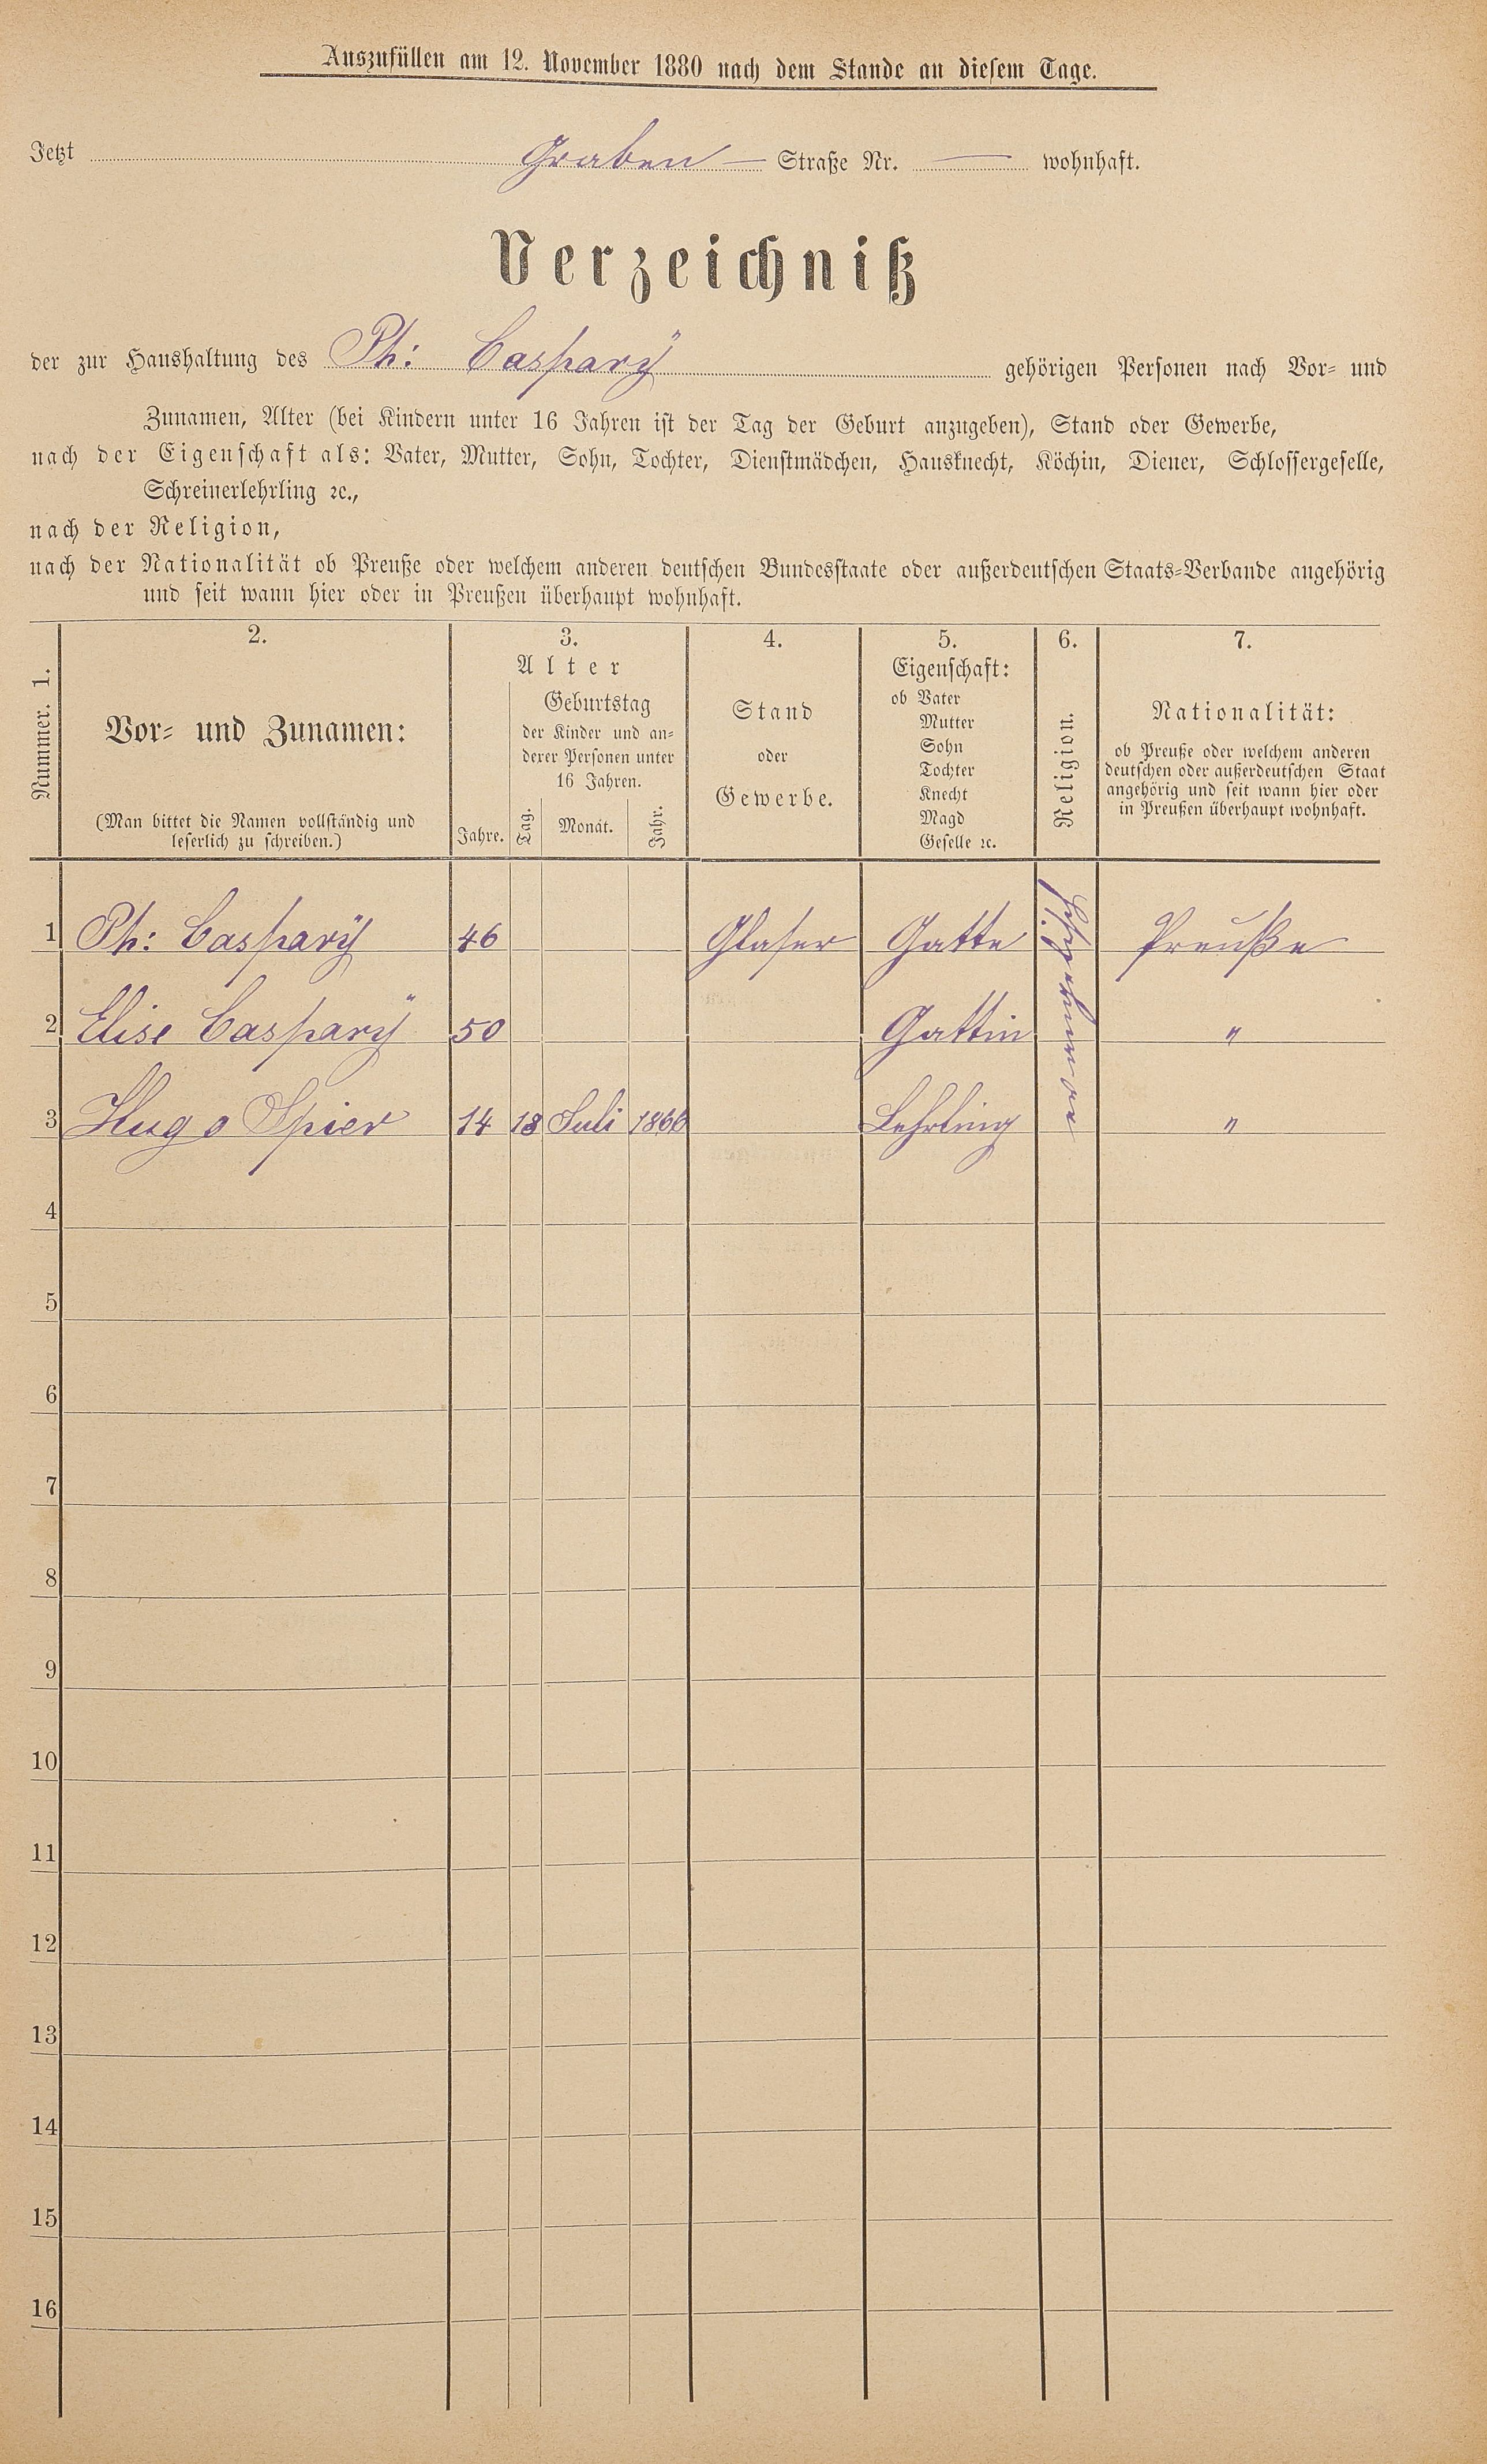 Auszufüllen am 12. November 1880 nach dem Stande an diesem Tage.
Jetzt Graben — Straße Nr. — wohnhaft.
Verzeichniß
der zur Haushaltung des Ph: Casparÿ gehörigen Personen nach Vor= und
Zunamen, Alter (bei Kindern unter 16 Jahren ist der Tag der Geburt anzugeben), Stand oder Gewerbe,
nach der Eigenschaft als: Vater, Mutter, Sohn, Tochter, Dienstmädchen, Hausknecht, Köchin, Diener, Schlossergeselle,
Schreinerlehrling ꝛc.,
nach der Religion,
nach der Nationalität ob Preuße oder welchem anderen deutschen Bundesstaate oder außerdeutschen Staats=Verbande angehörig
und seit wann hier oder in Preußen überhaupt wohnhaft.
Nummer. 1.
2.
Vor= und Zunamen:
(Man bittet die Namen vollständig und
leserlich zu schreiben.)
3.
Alter
Jahre.
Geburtstag
der Kinder und an=
derer Personen unter
16 Jahren.
Tag. Monat. Jahr.
4.
Stand
oder
Gewerbe.
5.
Eigenschaft:
ob Vater
Mutter
Sohn
Tochter
Knecht
Magd
Geselle ꝛc.
6.
Religion.
7.
Nationalität:
ob Preuße oder welchem anderen
deutschen oder außerdeutschen Staat
angehörig und seit wann hier oder
in Preußen überhaupt wohnhaft.
1 Ph: Casparÿ 46 Glaser Gatte Preuße
2 Elise Casparÿ 50 Gattin "
3 Hugo Spier 14 18 Juli 1866 Lehrling "
4
5
6
7
8
9
10
11
12
13
14
15
16